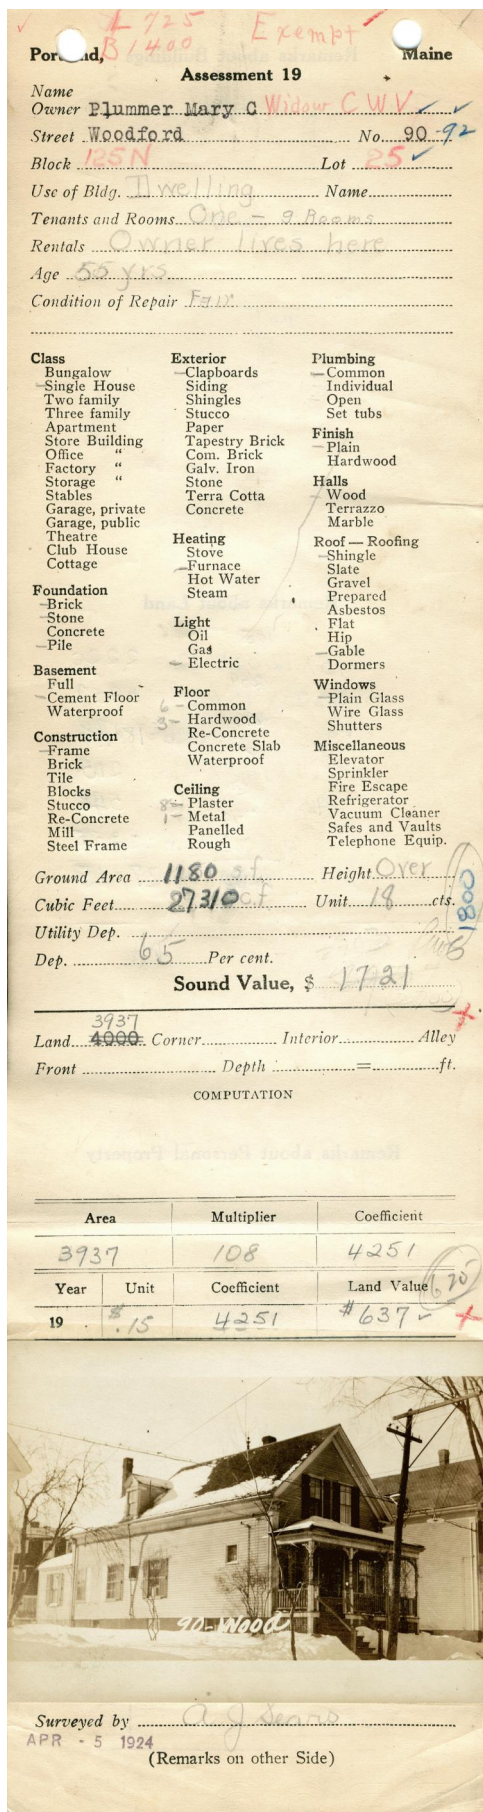 L 725
B 1400
Exempt
Portland, Maine
Assessment 19
Name
Owner Plummer Mary C Widow C W V
Street Woodford No. 90-92
Block 125N Lot 25
Use of Bldg. Dwelling Name
Tenants and Rooms One - 9 Rooms
Rentals Owner lives here
Age 55 yrs
Condition of Repair Fair
Class
Bungalow
Single House
Two family
Three family
Apartment
Store Building
Office "
Factory "
Storage "
Stables
Garage, private
Garage, public
Theatre
Club House
Cottage
Foundation
Brick
Stone
Concrete
Pile
Basement
Full
Cement Floor
Waterproof
Construction
Frame
Brick
Tile
Blocks
Stucco
Re-Concrete
Mill
Steel Frame
Exterior
Clapboards
Siding
Shingles
Stucco
Paper
Tapestry Brick
Com. Brick
Galv. Iron
Stone
Terra Cotta
Concrete
Heating
Stove
Furnace
Hot Water
Steam
Light
Oil
Gas
Electric
Floor
6 - Common
3 - Hardwood
Re-Concrete
Concrete Slab
Waterproof
Ceiling
8 - Plaster
1 - Metal
Panelled
Rough
Plumbing
Common
Individual
Open
Set tubs
Finish
Plain
Hardwood
Halls
Wood
Terrazzo
Marble
Roof — Roofing
Shingle
Slate
Gravel
Prepared
Asbestos
Flat
Hip
Gable
Dormers
Windows
Plain Glass
Wire Glass
Shutters
Miscellaneous
Elevator
Sprinkler
Fire Escape
Refrigerator
Vacuum Cleaner
Safes and Vaults
Telephone Equip.
Ground Area 1180 s.f. Height Over
Cubic Feet 27310 c.f. Unit 18 cts.
1800
Utility Dep.
Dep. 65 Per cent.
Sound Value, $ 1721
3937
Land 4000 Corner Interior Alley
Front Depth = ft.
COMPUTATION
Area Multiplier Coefficient
3937 108 4251
Year Unit Coefficient Land Value
19 $.15 4251 $637
90-Wood
Surveyed by A J Sears
APR - 5 1924
(Remarks on other Side)